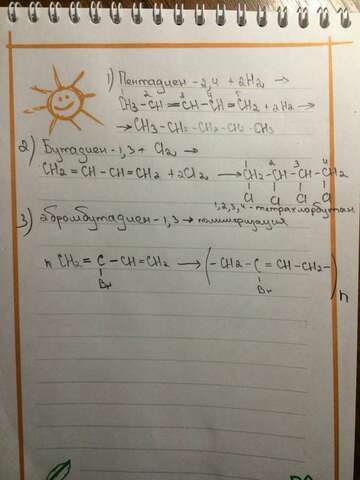 1) Пентадиен - 2,4 + 2H2 →
1 2 3 4 5
CH3 - CH = CH - CH = CH2 + 2H2 →
→ CH3 - CH2 - CH2 - CH2 - CH3
2) Бутадиен - 1,3 + Cl2 →
1 2 3 4
CH2 = CH - CH = CH2 + 2Cl2 → CH2 - CH - CH - CH2
Cl Cl Cl Cl
1,2,3,4 - тетрахлорбутан
3) 2бромбутадиен - 1,3 → полимеризация
n CH2 = C - CH = CH2 → ( - CH2 - C = CH - CH2 - ) n
Br Br